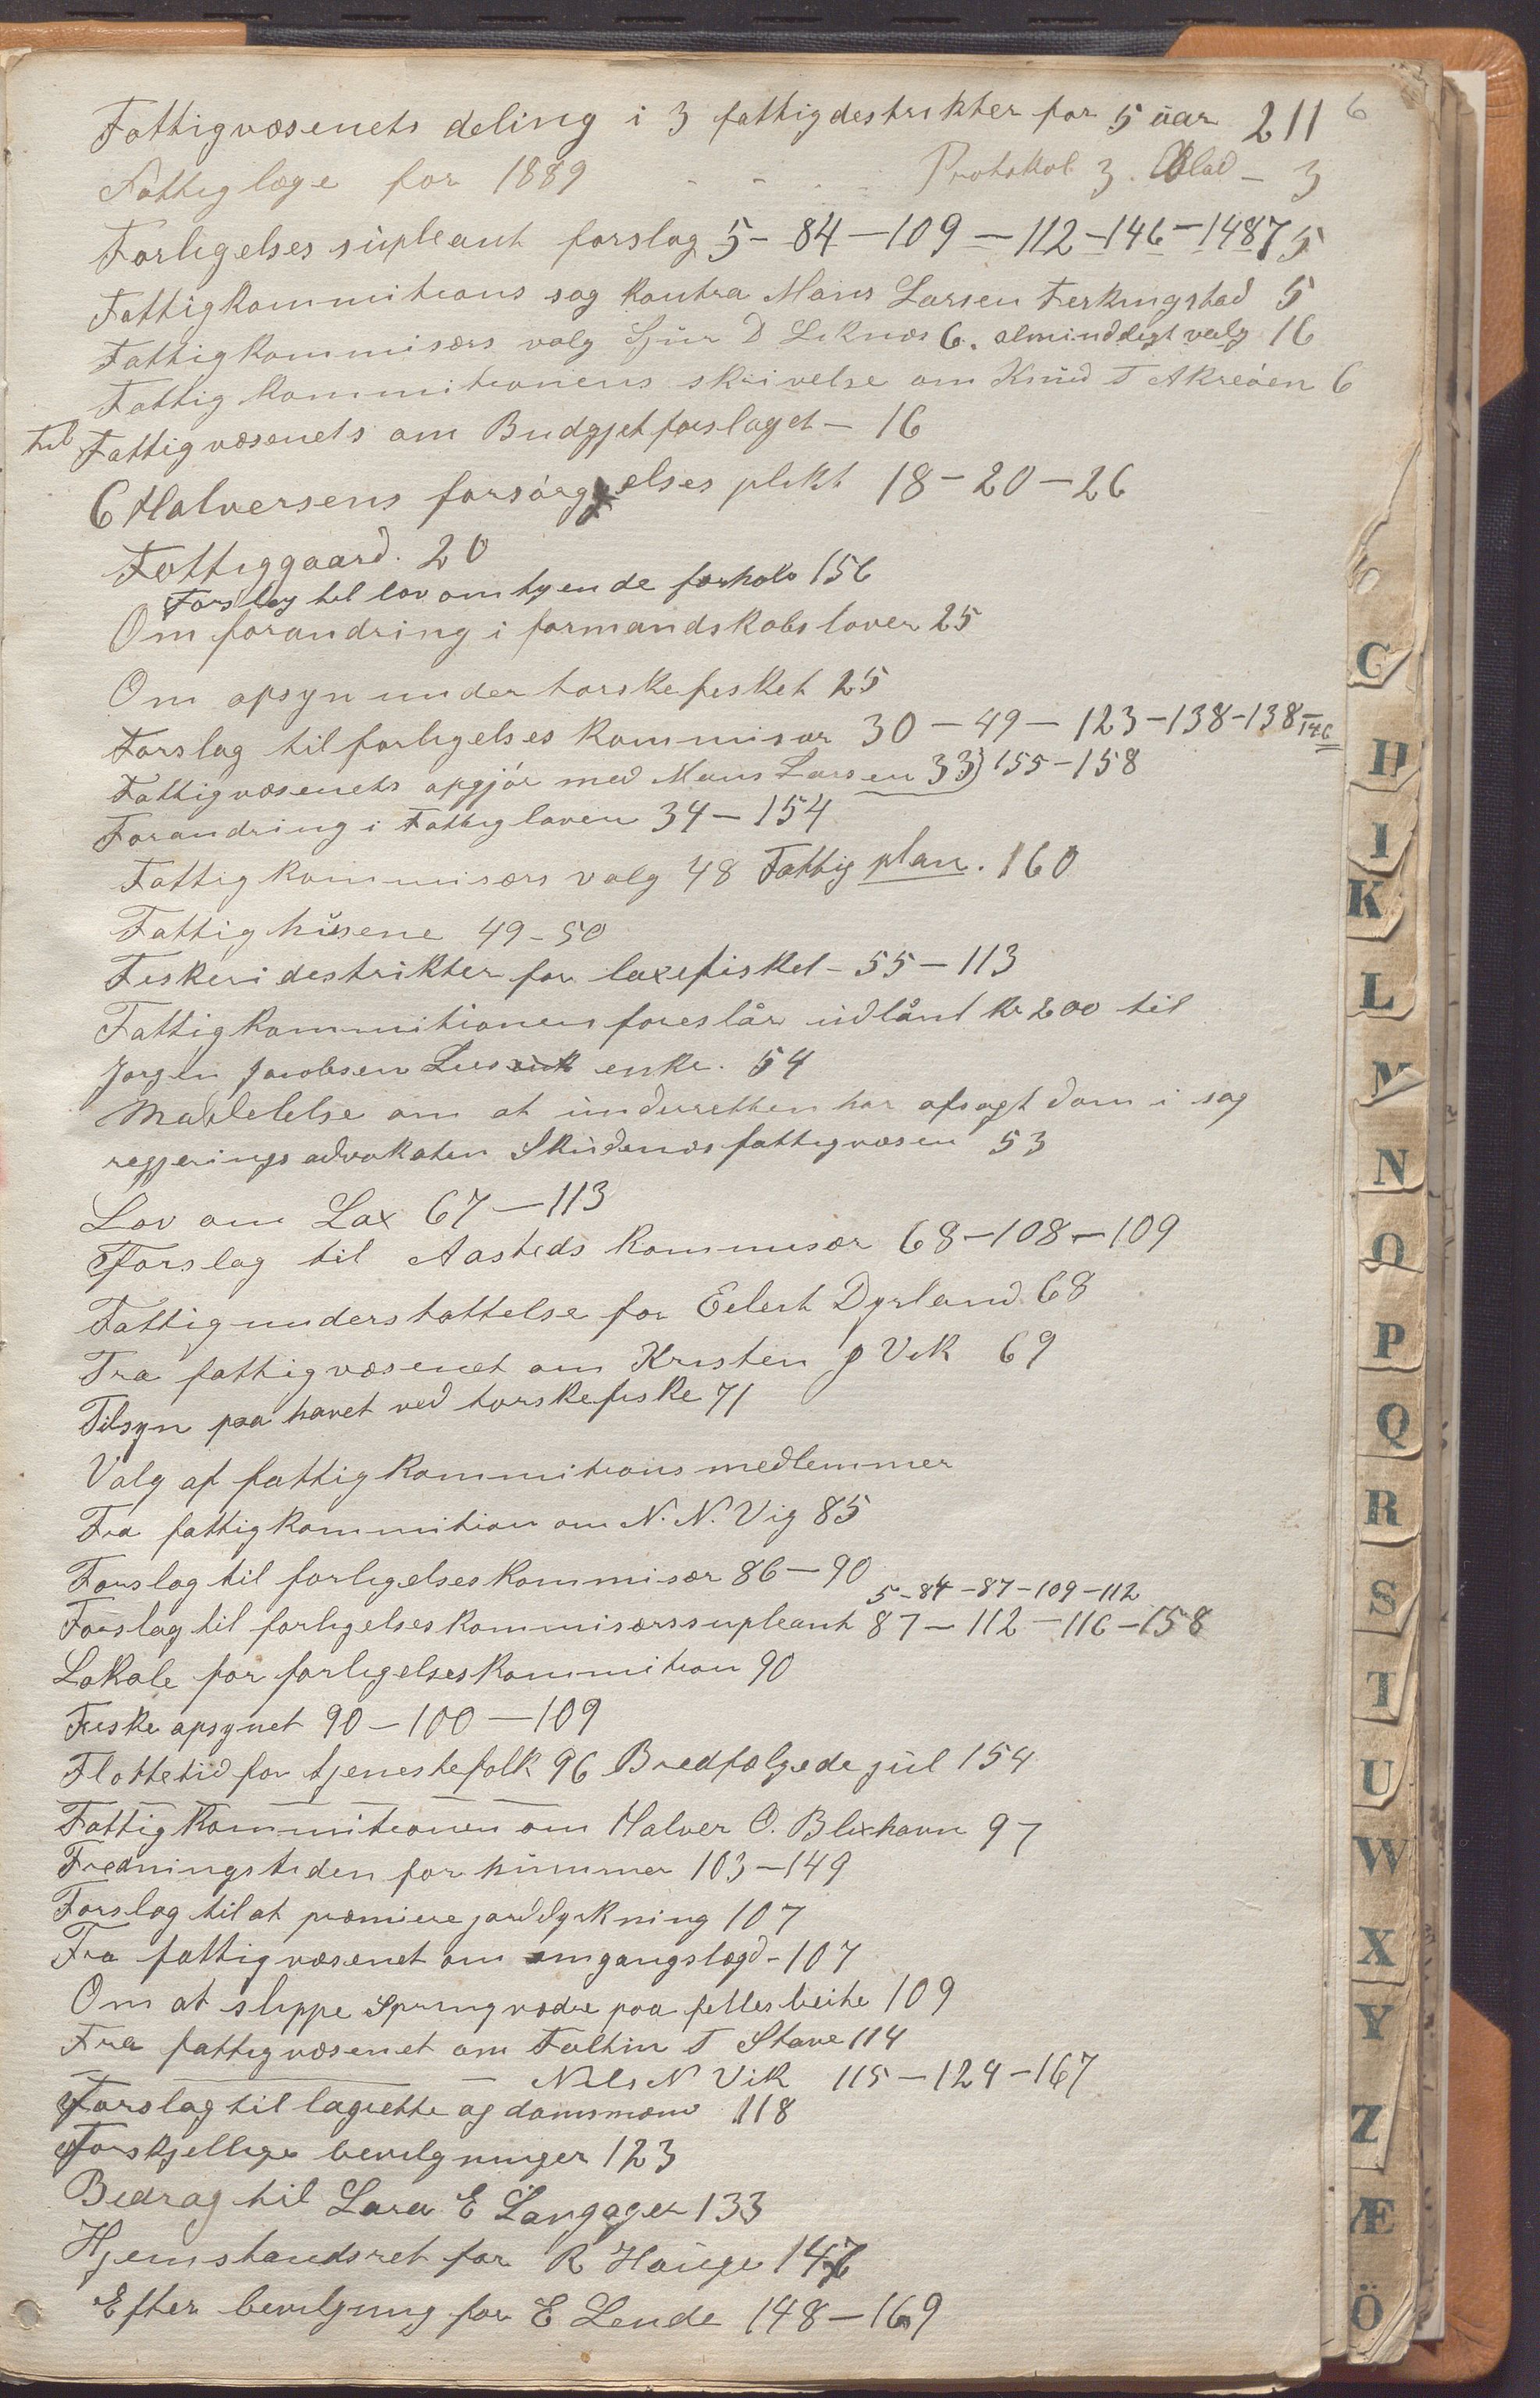 Fattigvæsenets deling i 3 fattigdestrikter for 5 aar 211
6
Fattiglæge for 1889 - - - - Protokol 3. Blad - 3
Forligelses supleant forslag 5 - 84 - 109 - 112 - 146 - 148 75
Fattigkommitions sag kontra Mons Larsen Ferkingstad 5
Fattigkommisærs valg Sjur D Liknæs 6. almindeligt valg 16
Fattigkommitionens skrivelse om Knud T Akreøen 6
til Fattigvæsenets om Budgjetforslaget - 16
C Halversens forsørgelses plikt 18 - 20 - 26
Fattiggaard. 20
Forslag til lov om tyende forhold 156
Om forandring i formandskabslover 25
Om opsyn under torskefisket 25
Forslag til forligelses kommisær 30 - 49 - 123 - 138 - 138 - 146
Fattigvæsenets opgjør med Mons Larsen 33) 155 - 158
Forandring i Fattigloven 34 - 154
Fattigkommisærs valg 48 Fattig plan. 160
Fattighusene 49 - 50
Fiskeridestrikter for laxefisket - 55 - 113
Fattigkommitionen foreslår udlånt kr 200 til
Jørgen Jacobsen enke. 54
Maddelelse om at underretten har afsagt dom i sag
regjeringsadvokaten Skudenæs fattigvæsen 53
Lov om Lax 67 - 113
Forslag til Aasteds kommisær 68 - 108 - 109
Fattigunderstøttelse for Eelert Dyrland 68
Fra fattigvæsenet om Kristen J Vik 69
Tilsyn paa havet ved torskefiske 71
Valg af fattigkommitionsmedlemmer
Fra fattigkommition om N. N. Vig 85
Forslag til forligelseskommisær 86 - 90
5 - 84 - 87 - 109 - 112
Forslag til forligelseskommisærssupleant 87 - 112 - 116 - 158
Lokale for forligelseskommition 90
Fiske opsynet 90 - 100 - 109
Flottetid for tjenestefolk 96 Bredfælgede jul 154
Fattigkommitionen om Halver O. Blixhavn 97
Fredningstiden for hummer 103 - 149
Forslag til at præmiere jorddyrkning 107
Fra fattigvæsenet om omgangslægd - 107
Om at slippe Springvædre paa fellesbeite 109
Fra fattigvæsenet om Faltin T Stave 114
Nils N Vik 115 - 124 - 167
Forslag til lagrette og domsmænd 118
Forskjellige bevilgninger 123
Bedrag til Lars E Langager 133
Hjemstandsret for R Hauge 147
Efter bevilgning for E Lende 148 - 169
C
H
I
K
L
M
N
O
P
Q
R
S
T
U
W
X
Y
Z
Æ
Ö